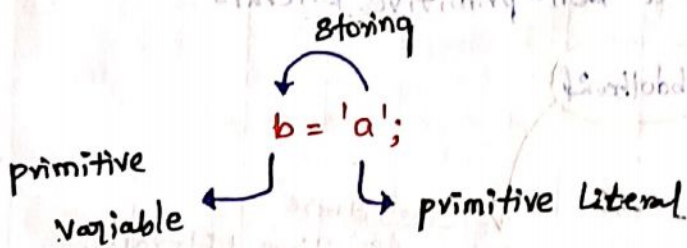 storing
b = 'a';
primitive
variable
primitive Literal.